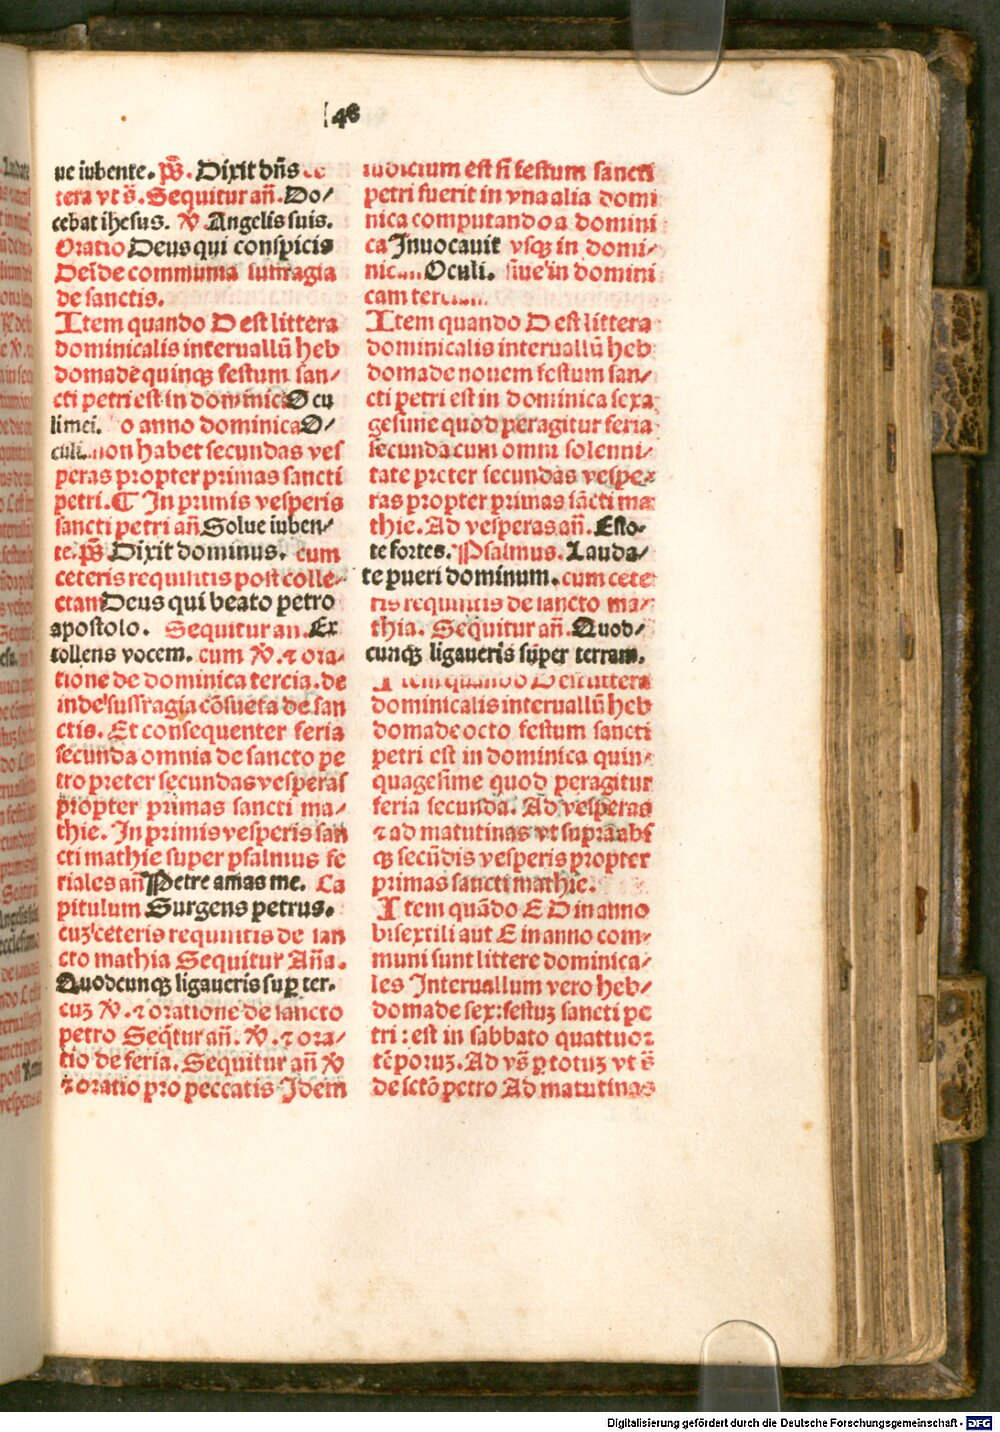 48
ue iubente. p̄s. Dixit dn̄s ce
tera vt s̄. Sequitur an̄. Do/
cebat ihesus. v̄. Angelis suis.
Oratio Deus qui conspicis
Deīde communia suffragia
de sanctis.
Item quando D est littera
dominicalis interuallū heb
domade quinqȝ festum san/
cti petri est in dominica Ocu
li mei. o anno dominica O/
culi non habet secundas ves
peras propter primas sancti
petri. ¶ In primis vesperis
sancti petri an̄ Solue iuben/
te. p̄s Dixit dominus. cum
ceteris requisitis post colle-
ctam Deus qui beato petro
apostolo. Sequitur an. Ex
tollens vocem. cum v̄. ⁊ ora-
tione de dominica tercia. de
inde suffragia cōsueta de san
ctis. Et consequenter feria
secunda omnia de sancto pe
tro preter secundas vesperas
propter primas sancti ma/
thie. In primis vesperis san
cti mathie super psalmus fe
riales an̄ Petre amas me. Ca
pitulum Surgens petrus.
cuȝ ceteris requisitis de san
cto mathia Sequitur An̄a.
Quodcunqȝ ligaueris suꝑ ter-
cuȝ v̄. ⁊ oratione de sancto
petro Seq̄tur an̄. v̄. ⁊ ora/
tio de feria. Sequitur an̄ v̄
⁊ oratio pro peccatis Idem
iudicium est si festum sancti
petri fuerit in vna alia domi
nica computando a domini
ca Inuocauit vsqȝ in domi-
nic Oculi. siue in domini
cam
Item quando D est littera
dominicalis interuallū heb
domade nouem festum san/
cti petri est in dominica sexa
gesime quod peragitur feria
secunda cum omni solenni/
tate preter secundas vespe-
ras propter primas sācti ma
thie. Ad vesperas an̄. Esto-
te fortes. Psalmus. Lauda/
te pueri dominum. cum cete
ris requisitis de sancto ma/
thia. Sequitur an̄. Quod-
cunqȝ ligaueris super terram.
Item quando D est littera
dominicalis interuallū heb
domade octo festum sancti
petri est in dominica quin-
quagesime quod peragitur
feria secunda. Ad vesperas
⁊ ad matutinas vt supra abs
qȝ secūdis vesperis propter
primas sancti mathie.
Item quādo E D in anno
bisextili aut E in anno com-
muni sunt littere dominica/
les Interuallum vero heb/
domade sex: festuȝ sancti pe
tri: est in sabbato quattuor
tēporuȝ. Ad vs̄ ꝑ totuȝ vt s̄
de sctō petro Ad matutinas
Digitalisierung gefördert durch die Deutsche Forschungsgemeinschaft - DFG